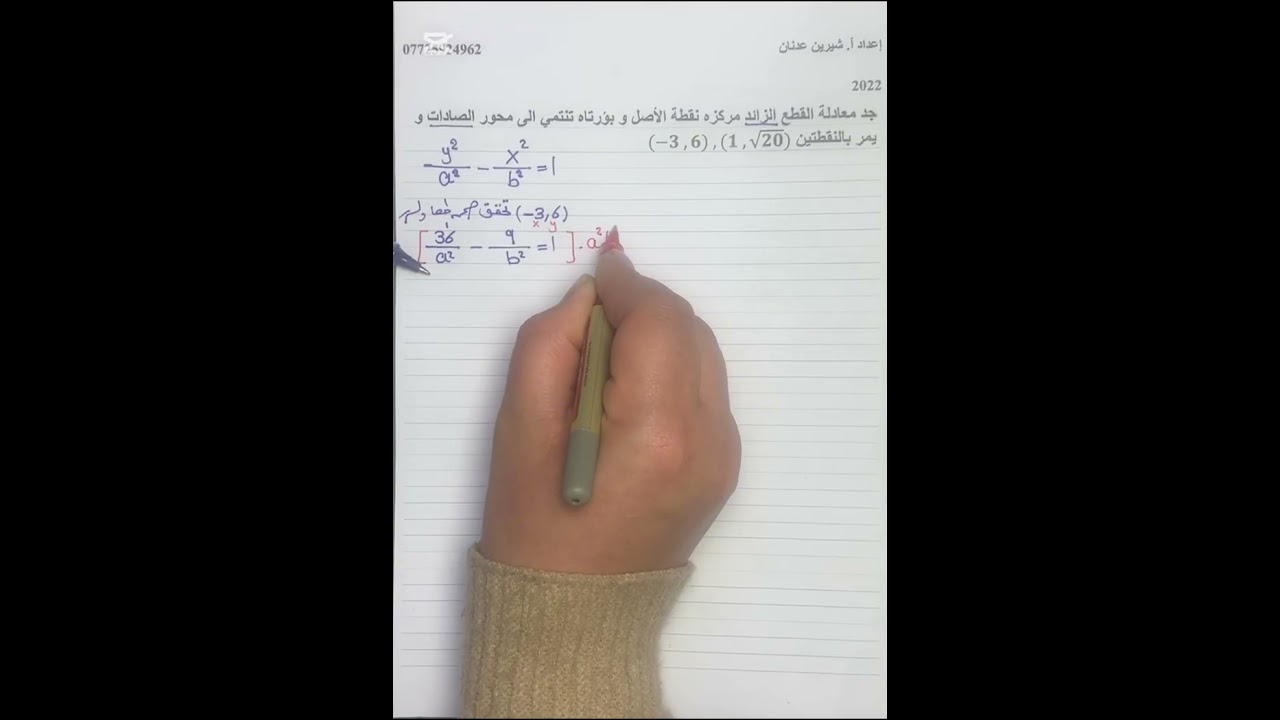 إعداد أ. شيرين عدنان
2022
جد معادلة القطع الزائد مركزه نقطة الأصل و بؤرتاه تنتمي الى محور الصادات و
يمر بالنقطتين (1 ,√20) , (−3 ,6)
y²/a² − x²/b² = 1
(−3,6) تحقق
x y
[36/a² − 9/b² = 1] · a²